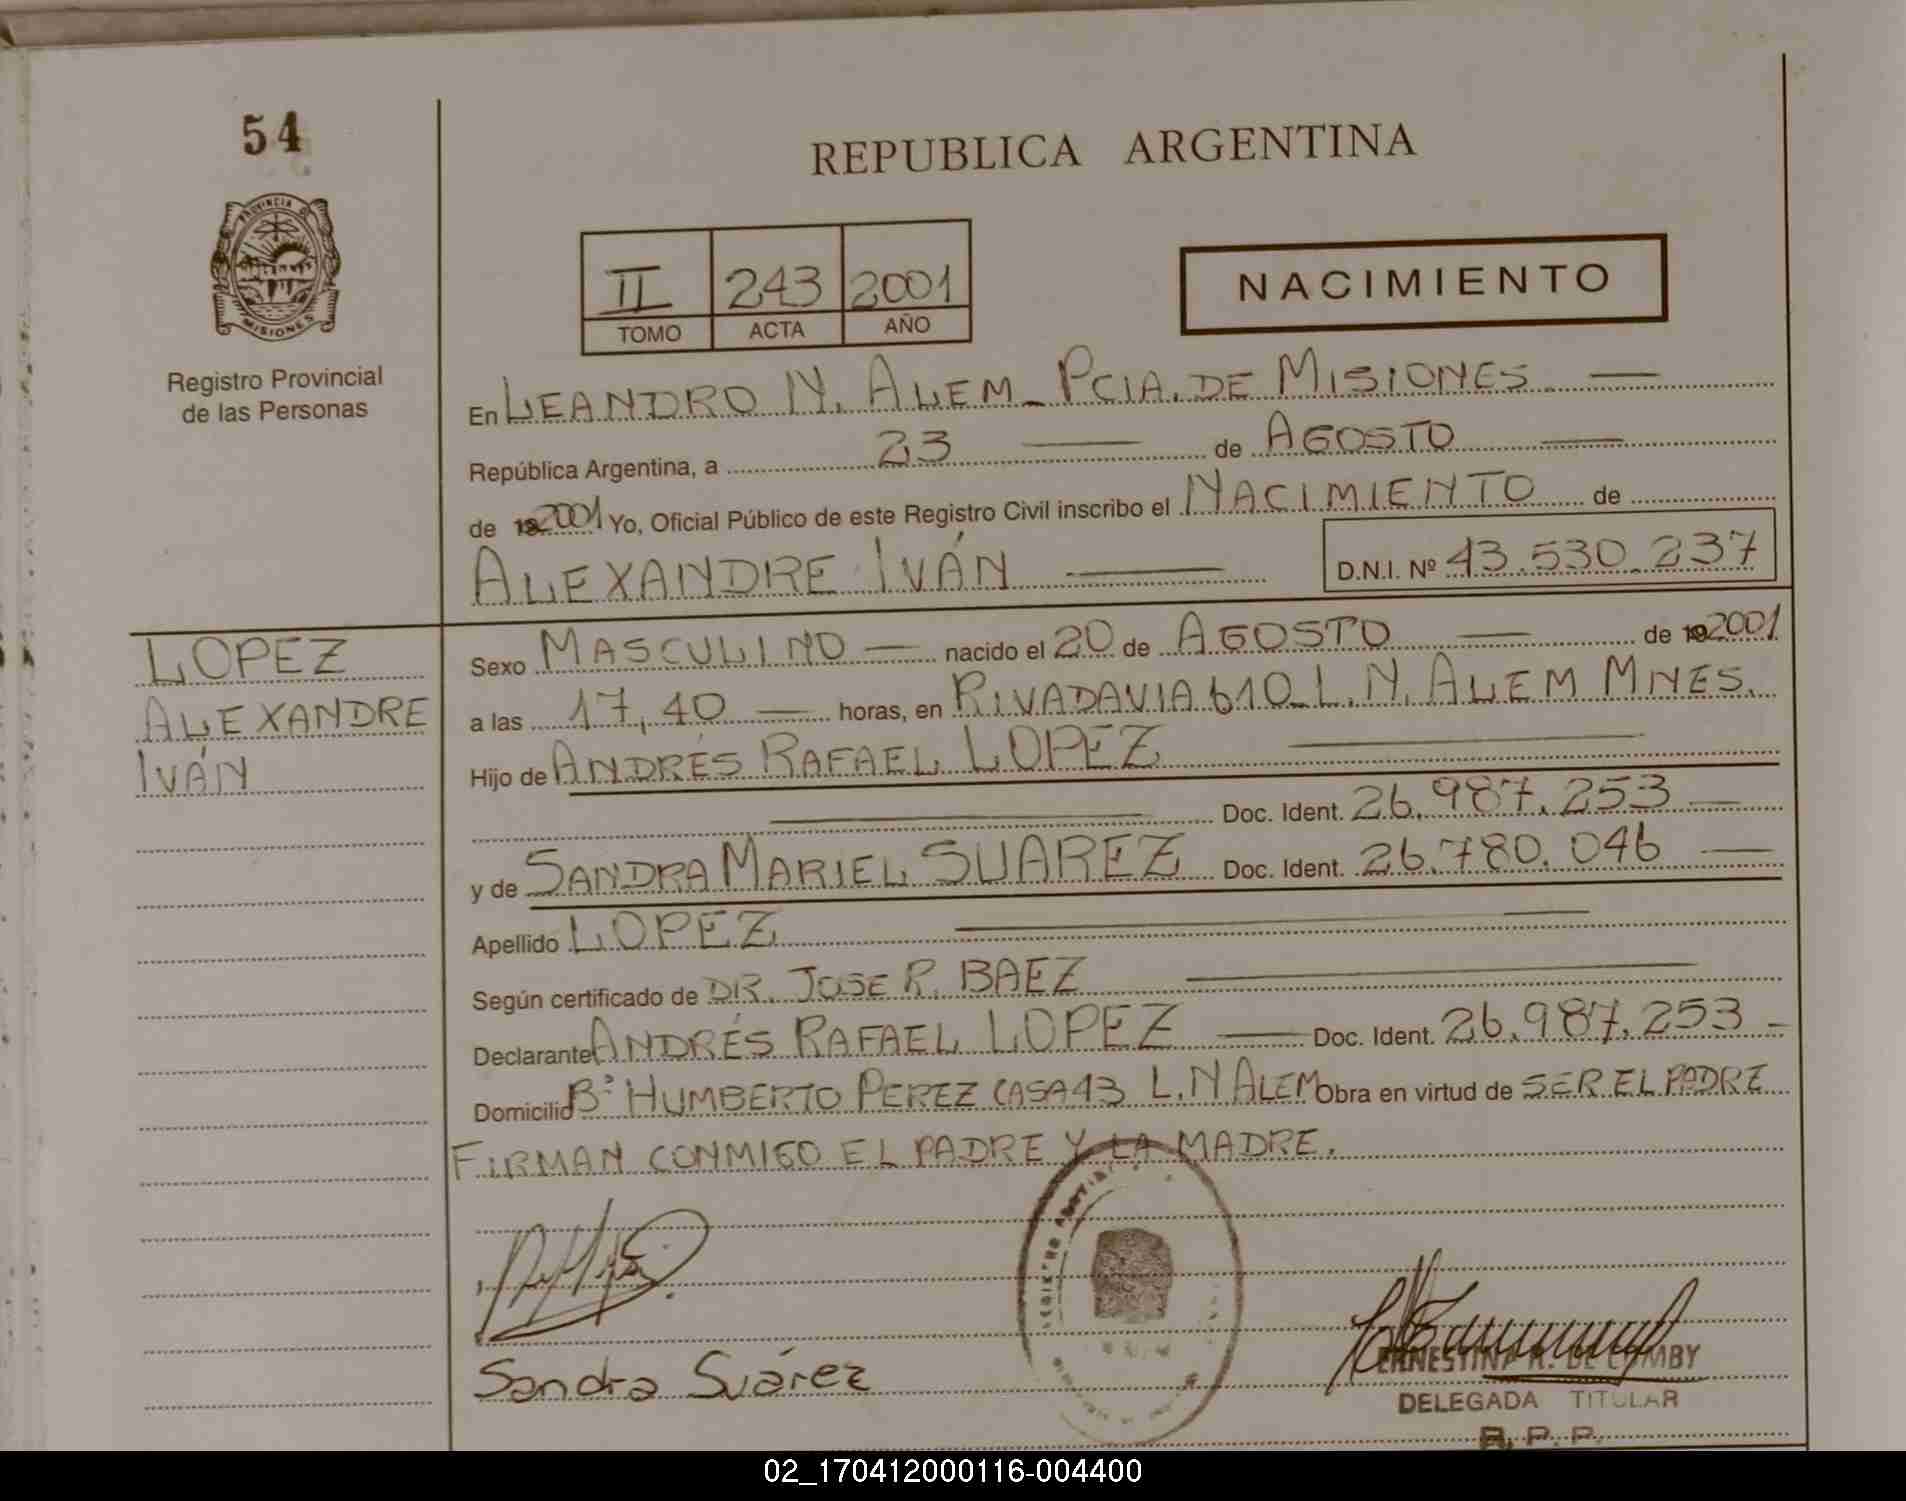 54
REPUBLICA ARGENTINA
PROVINCIA DE
MISIONES
Registro Provincial
de las Personas
II 243 2001
TOMO ACTA AÑO
NACIMIENTO
En LEANDRO N. ALEM - PCIA. DE MISIONES. —
República Argentina, a 23 — de AGOSTO —
de 192001 Yo, Oficial Público de este Registro Civil inscribo el NACIMIENTO de
ALEXANDRE IVÁN — D.N.I. Nº 43.530.237
LOPEZ
ALEXANDRE
IVÁN
Sexo MASCULINO — nacido el 20 de AGOSTO — de 192001
a las 17,40 — horas, en RIVADAVIA 610 - L. N. ALEM MNES.
Hijo de ANDRÉS RAFAEL LOPEZ —
— Doc. Ident. 26.987.253 —
y de SANDRA MARIEL SUAREZ Doc. Ident. 26.780.046 —
Apellido LOPEZ —
Según certificado de DR. JOSE R. BAEZ —
Declarante ANDRÉS RAFAEL LOPEZ — Doc. Ident. 26.987.253 -
Domicilio Bº HUMBERTO PEREZ CASA 43 L. N ALEM Obra en virtud de SER EL PADRE
FIRMAN CONMIGO EL PADRE Y LA MADRE.
Sandra Suárez
ERNESTINA R. DE COMBY
DELEGADA TITULAR
R. P. P.
02_170412000116-004400